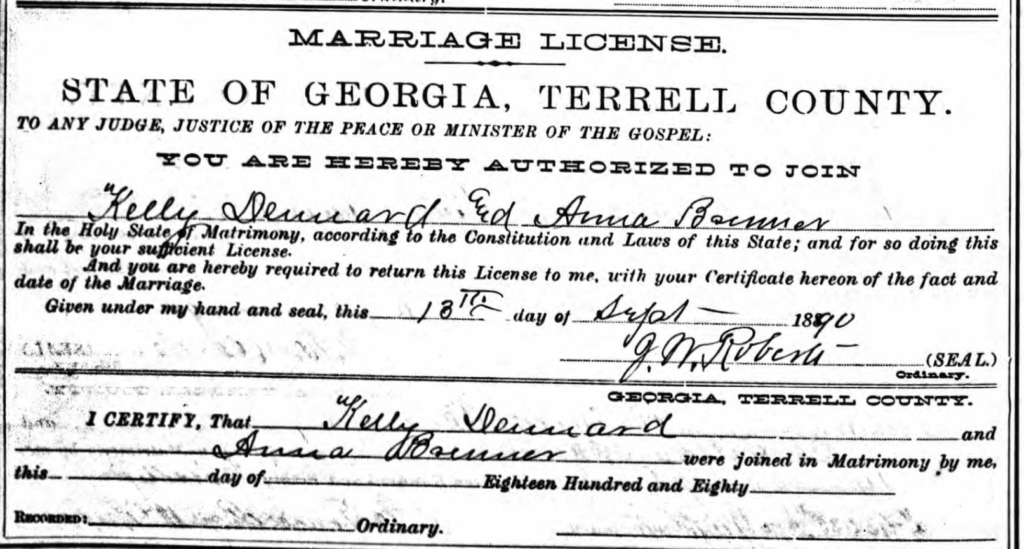 MARRIAGE LICENSE.
STATE OF GEORGIA, TERRELL COUNTY.
TO ANY JUDGE, JUSTICE OF THE PEACE OR MINISTER OF THE GOSPEL:
YOU ARE HEREBY AUTHORIZED TO JOIN
Kelly Dennard End Anna Brenner
In the Holy State of Matrimony, according to the Constitution and Laws of this State; and for so doing this
shall be your sufficient License.
And you are hereby required to return this License to me, with your Certificate hereon of the fact and
date of the Marriage.
Given under my hand and seal, this 13TH day of Sept 1890
J. W. Roberts (SEAL.)
Ordinary.
GEORGIA, TERRELL COUNTY.
I CERTIFY, That Kelly Dennard and
Anna Brenner were joined in Matrimony by me,
this day of Eighteen Hundred and Eighty
RECORDED: Ordinary.